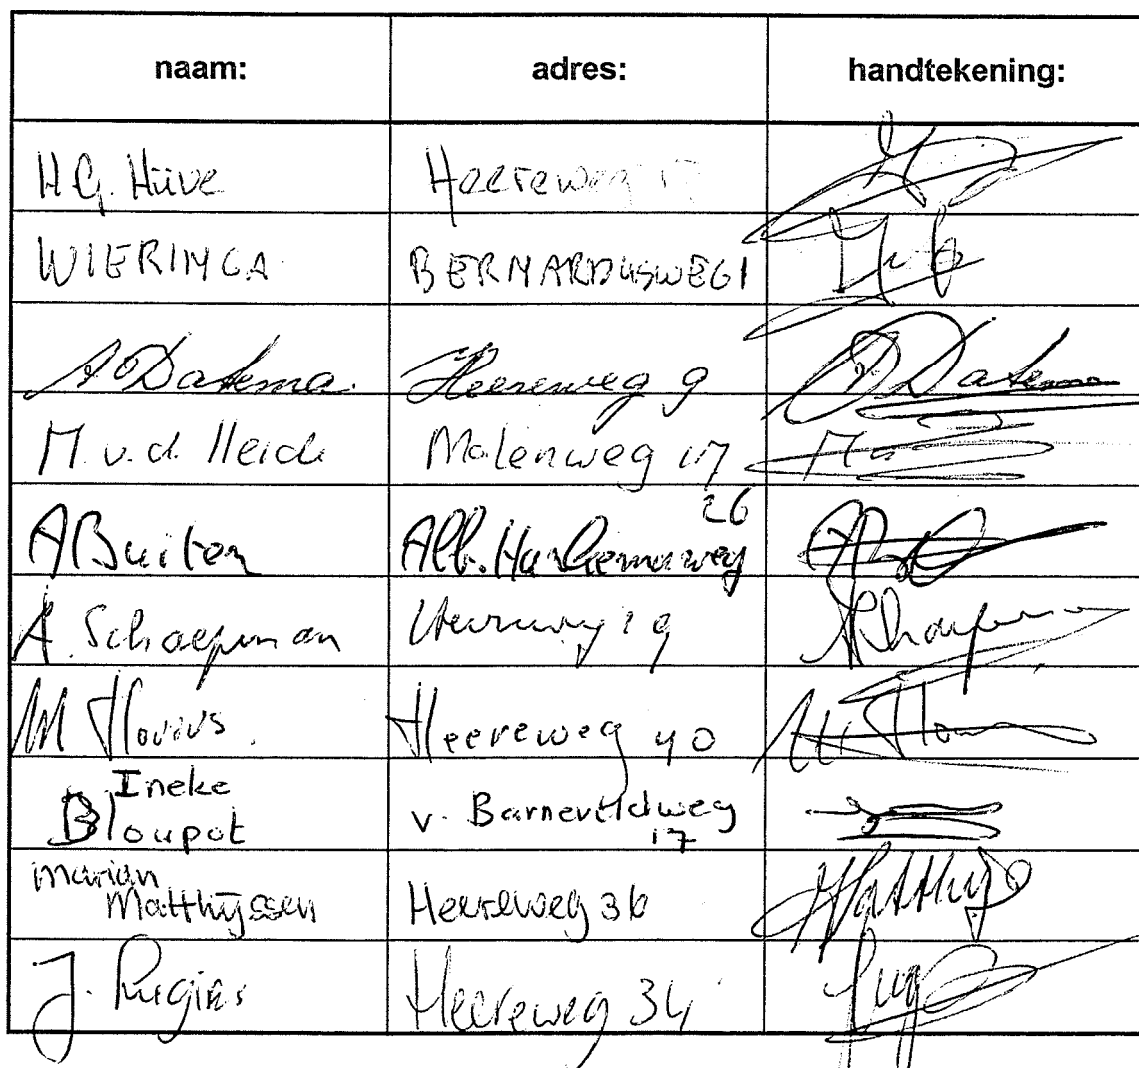 naam: adres: handtekening:
H.G. Hüve Heereweg
WIERINGA BERNARDUSWEG 1
A Datema Heereweg 9 Datema
M. v.d. Heide Molenweg 17
26
A Buiten Alb. Harkemaweg
A. Schaepman 19 Schaepman
M Hovius. Heereweg 40
Ineke
Bloupot v. Barneveldweg
17
Marian
Matthijssen Heereweg 36 Matthijs
J. Heereweg 34